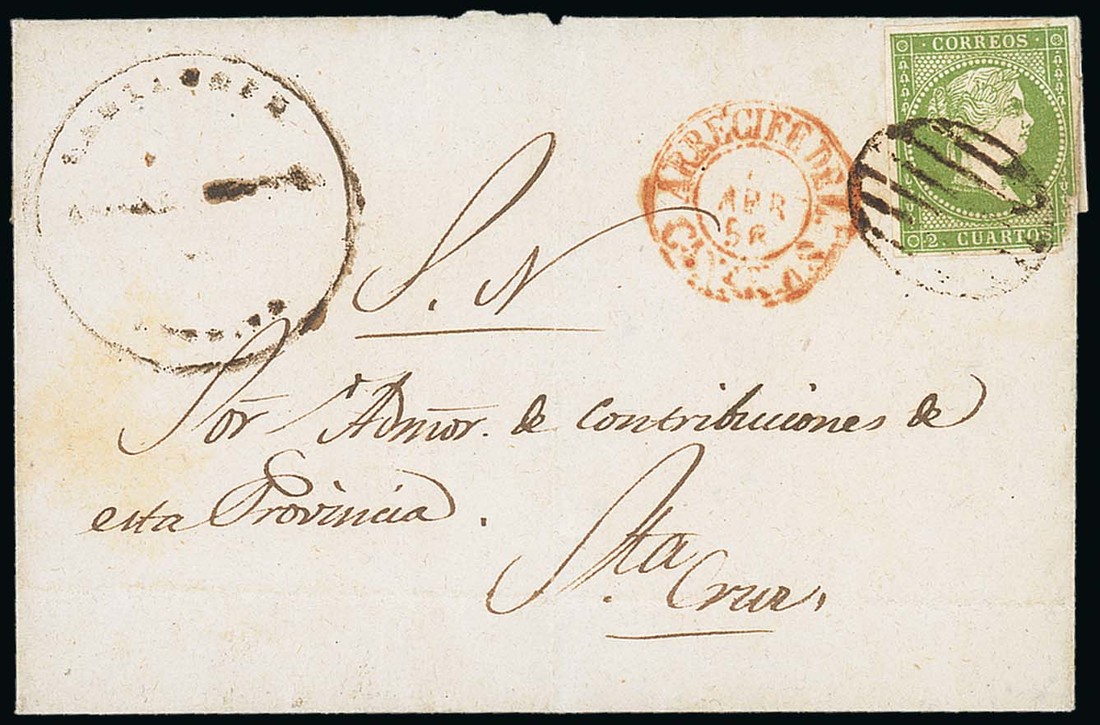 CORREOS
2. CUARTOS
ARRECIFE DE L
ABR
58
S. N
Señor Admor. de contribuciones de
esta Provincia.
Sta
Cruz.